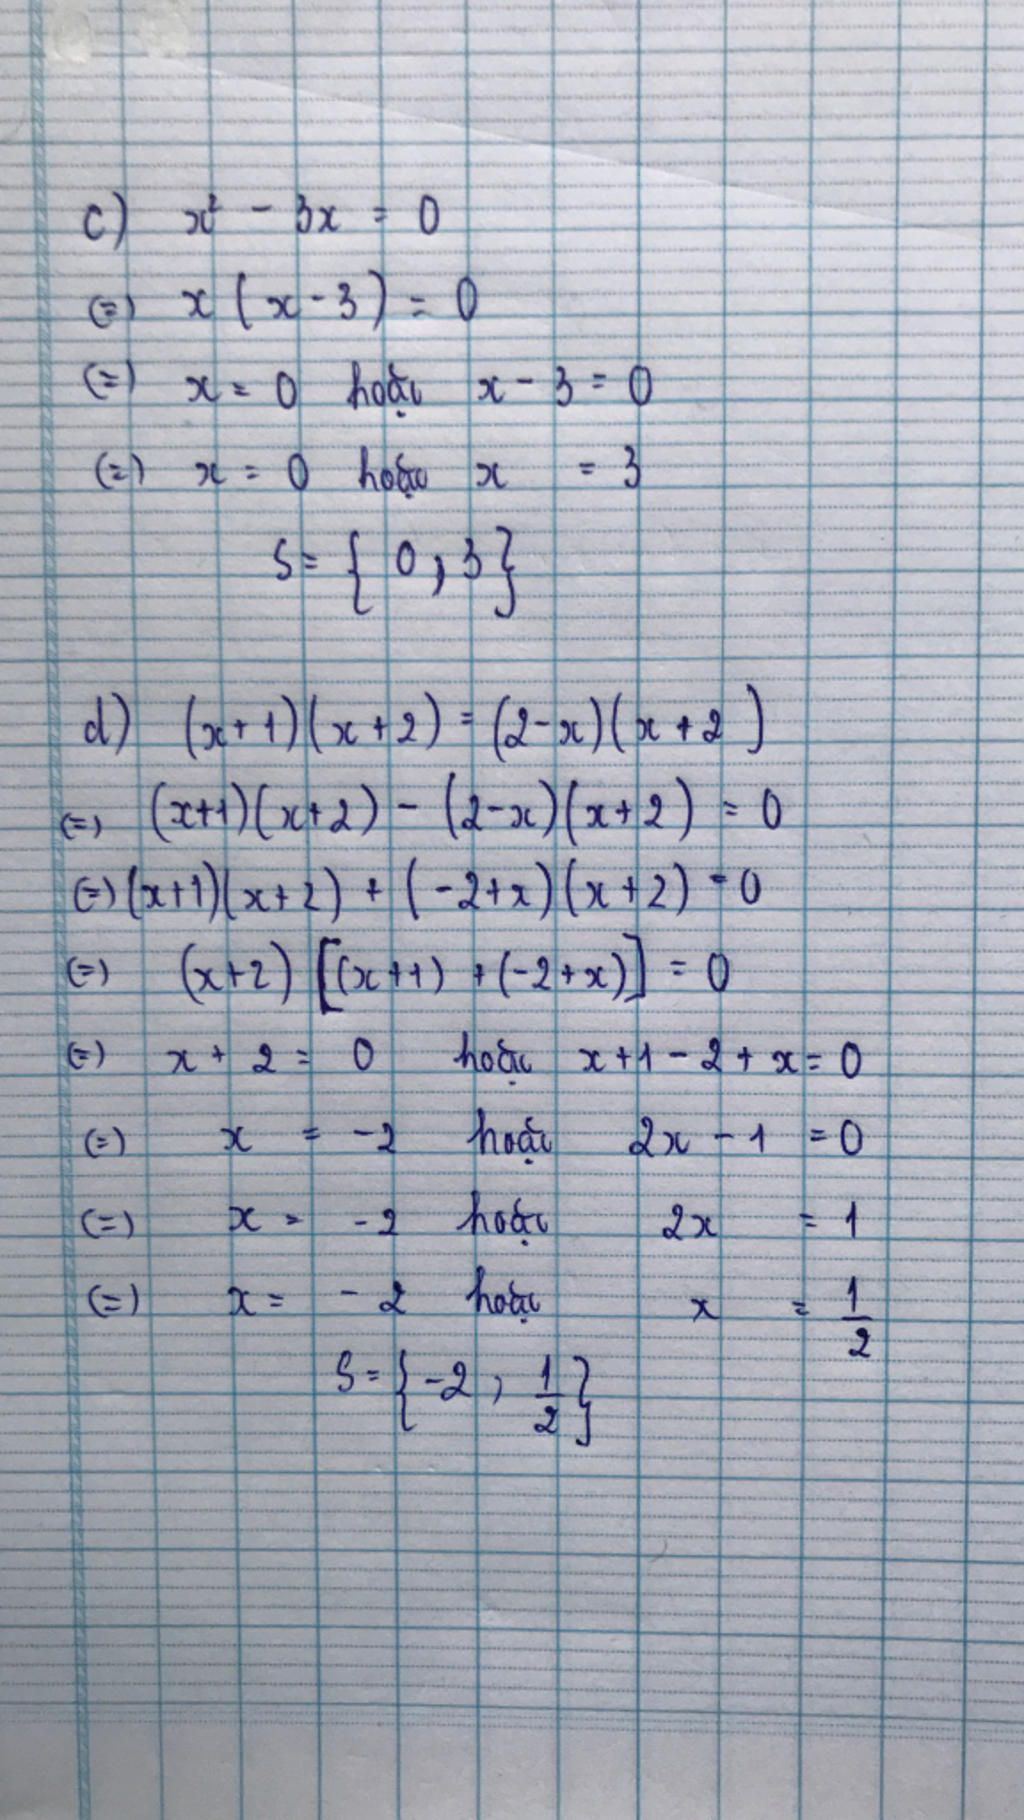 c) x² - 3x = 0
(=) x (x - 3) = 0
(=) x = 0 hoặc x - 3 = 0
(=) x = 0 hoặc x = 3
S = { 0 , 3 }
d) (x + 1)(x + 2) = (2 - x)(x + 2)
(=) (x+1)(x+2) - (2-x)(x+2) = 0
(=) (x+1)(x+2) + (-2+x)(x+2) = 0
(=) (x+2) [(x+1) + (-2+x)] = 0
(=) x + 2 = 0 hoặc x+1 - 2 + x = 0
(=) x = -2 hoặc 2x - 1 = 0
(=) x = -2 hoặc 2x = 1
(=) x = -2 hoặc x = 1/2
S = {-2 , 1/2}